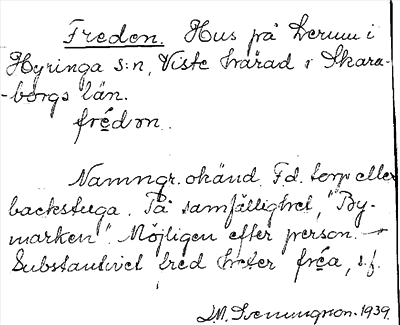 Fredon. Hus på Lerum i
Hyringa s:n, Viste härad i Skara-
-borgs län.
frédɔn.
Namngr. okänd. F.d. torp eller
backstuga. På samfällighet, "By-
marken". Möjligen efter person. –
Substantivet fred heter fréa, s.f.
1939.